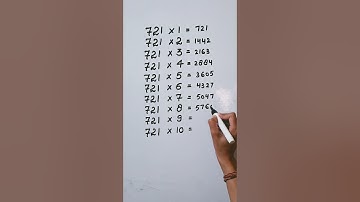 721 x 1 = 721
721 x 2 = 1442
721 x 3 = 2163
721 x 4 = 2884
721 x 5 = 3605
721 x 6 = 4327
721 x 7 = 5047
721 x 8 = 576
721 x 9 =
721 x 10 =